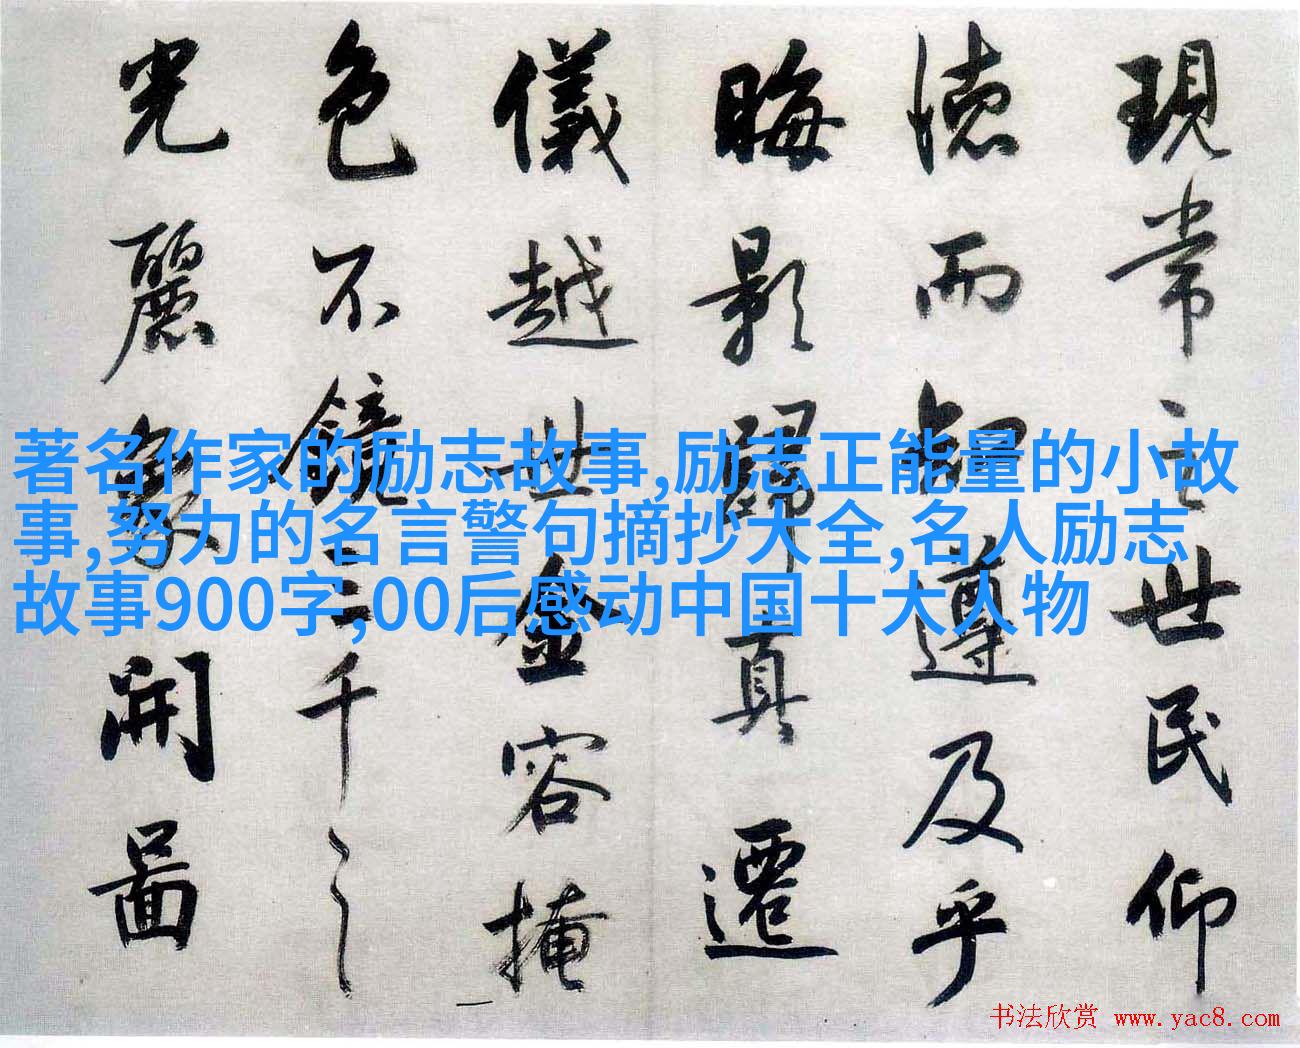 現常之世民仰
德而知遵及乎
晦影歸真遷
儀越世金容掩
色不鏡三千之
光麗象開圖
著名作家的励志故事,励志正能量的小故
事,努力的名言警句摘抄大全,名人励志
故事900字,00后感动中国十大人物
书法欣赏 www.yac8.com